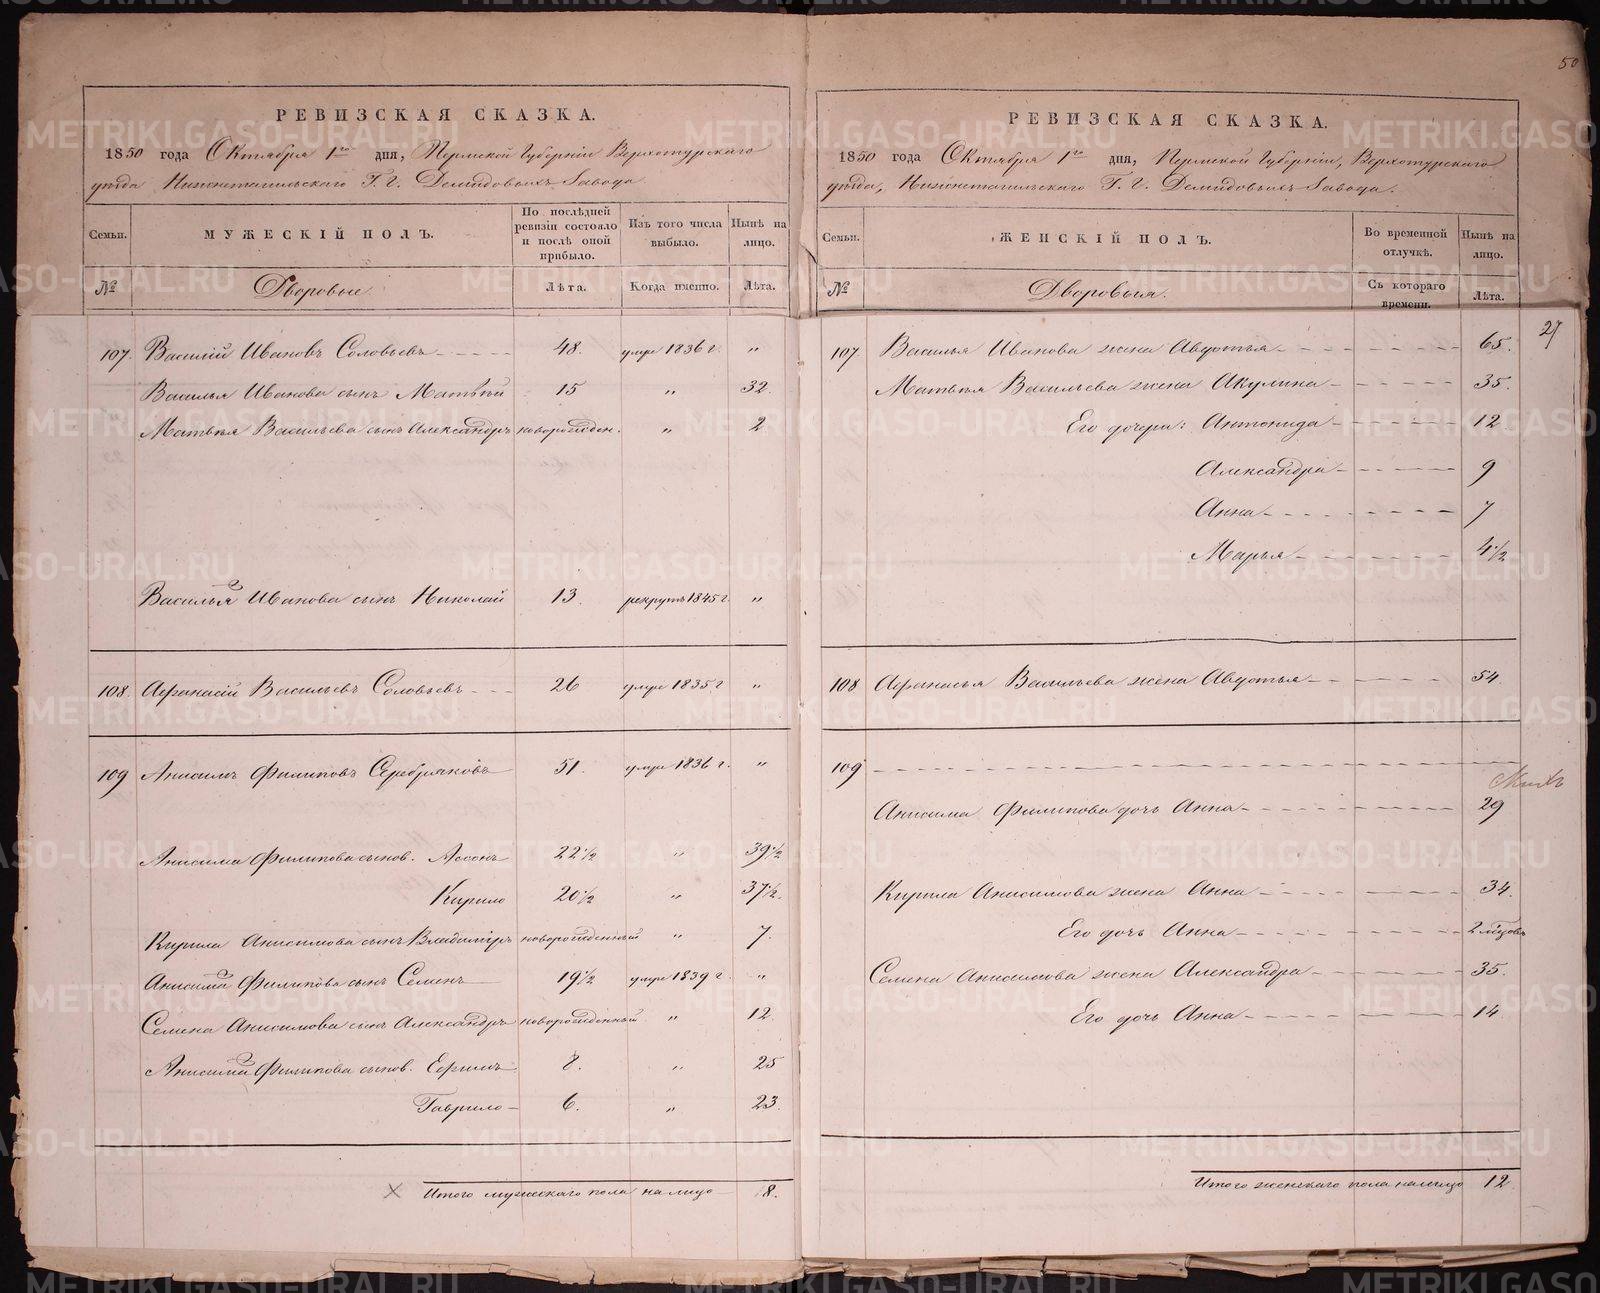 50
РЕВИЗСКАЯ СКАЗКА.
1850 года Октября 1го дня, Пермской Губернiи Верхотурскаго
уѣзда Нижнетагильскаго Г. Г. Демидовыхъ Завода
Семьи.
МУЖЕСКІЙ ПОЛЪ.
По послѣдней ревизіи состояло и послѣ оной прибыло.
Изъ того числа выбыло.
Нынѣ на лицо.
№ Дворовые Лѣта. Когда именно. Лѣта.
107 Василій Ивановъ Соловьевъ 48. умре 1836 г. "
Василья Иванова сынъ Матвѣй 15 " 32.
Матвѣя Васильева сынъ Александръ новорожден. " 2
Василья Иванова сынъ Николай 13. рекрутъ 1845 г. "
108. Афанасій Васильевъ Соловьевъ 26 умре 1835 г "
109 Анисимъ Филиповъ Серебряковъ 51. умре 1836 г. "
Анисима Филипова сынов. 22 1/2 " 39 1/2
Кирило 20 1/2 " 37 1/2.
Кирила Анисимова сынъ Владимiръ новорожденный " 7.
Анисима Филипова сынъ Семенъ 19 1/2 умре 1839 г. "
Семена Анисимова сынъ Александръ новорожденный " 12.
Анисима Филипова сынов. Ефимъ 8. " 25
Гаврило 6. " 23.
Итого мужескаго пола на лицо 8.
РЕВИЗСКАЯ СКАЗКА.
1850 года Октября 1го дня, Пермской Губернiи, Верхотурскаго
уѣзда, Нижнетагильскаго Г. Г. Демидовыхъ Завода.
Семьи.
ЖЕНСКІЙ ПОЛЪ.
Во временной отлучкѣ.
Нынѣ на лицо.
№ Дворовыя. Съ котораго времени. Лѣта.
27
107 Василья Иванова жена Авдотья 65.
Матвѣя Васильева жена Акулина 35.
Его дочери: Антонида 12
Александра 9
Анна 7
Марья 4 1/2
108 Афанасья Васильева жена Авдотья 54.
109
Анисима Филипова дочь Анна 29
Кирила Анисимова жена Анна 34.
Его дочь Анна 2
Семена Анисимова жена Александра 35.
Его дочь Анна 14
Итого женскаго пола налицо 12.
METRIKI.GASO-URAL.RU